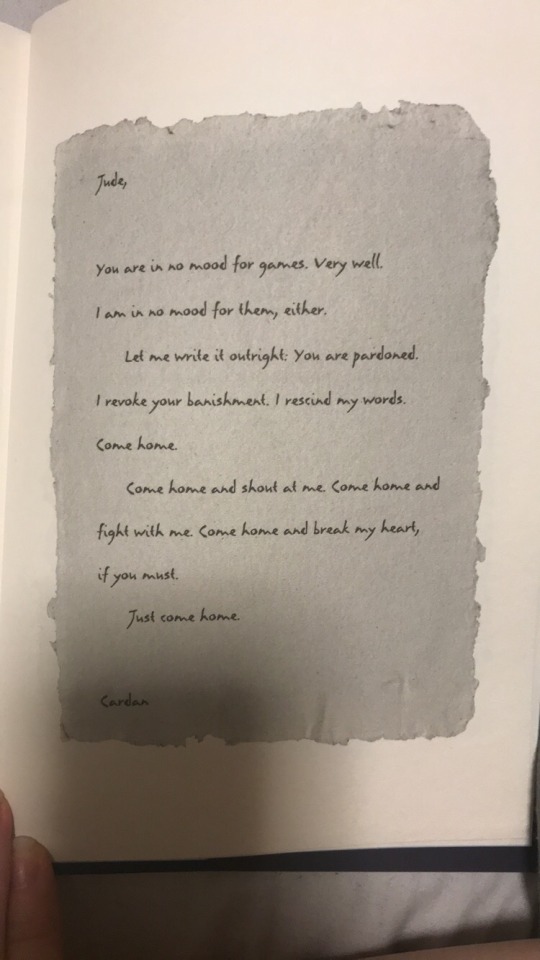 Jude,
You are in no mood for games. Very well.
I am in no mood for them, either.
Let me write it outright: You are pardoned.
I revoke your banishment. I rescind my words.
Come home.
Come home and shout at me. Come home and
fight with me. Come home and break my heart,
if you must.
Just come home.
Cardan